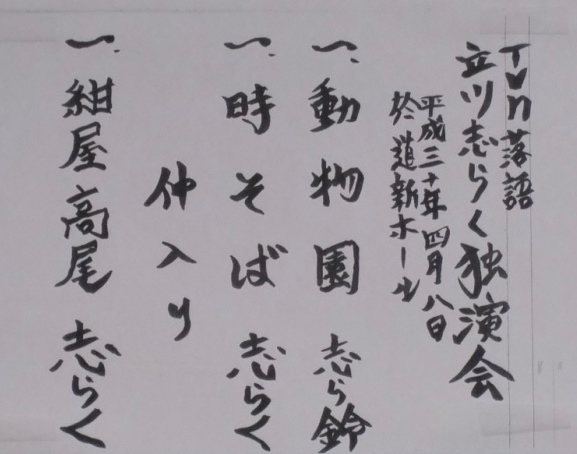 Tヴn落語
立川志らく独演会
平成三十年四月八日
於道新ホール
一、動物園 志ら鈴
一、時そば 志らく
仲入り
一、紺屋高尾 志らく